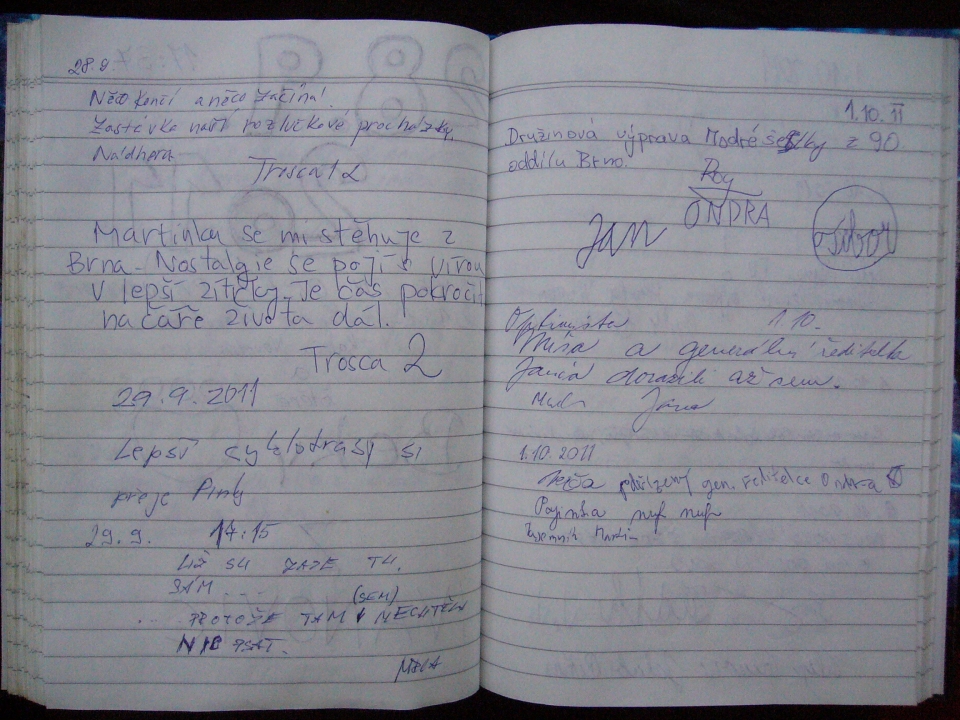 28.9.
Něco končí a něco začíná.
Zastávka naší rozlučkové procházky.
Nádhera
Trosca 1 2
Martinka se mi stěhuje z
Brna. Nostalgie se pojí s vírou
v lepší zítřky. Je čas pokročit
na čáře života dál.
Trosca 2
29.9.2011
Lepší cyklotrasy si
přeje Pinky
29.9. 17:15
UŽ SU ZASE TU.
SÁM ...
(SEM)
... PROTOŽE TAM NECHTĚLA
NIC PSÁT.
1.10.11
Družinová výprava Modré šestky z 90.
oddílu Brno.
Roy
ONDRA
Jan
Optimista 1.10.
Míša a generální ředitelka
Jana dorazili až sem.
Jana
1.10.2011
podřízený gen. ředitelce Ondra
nuf nuf